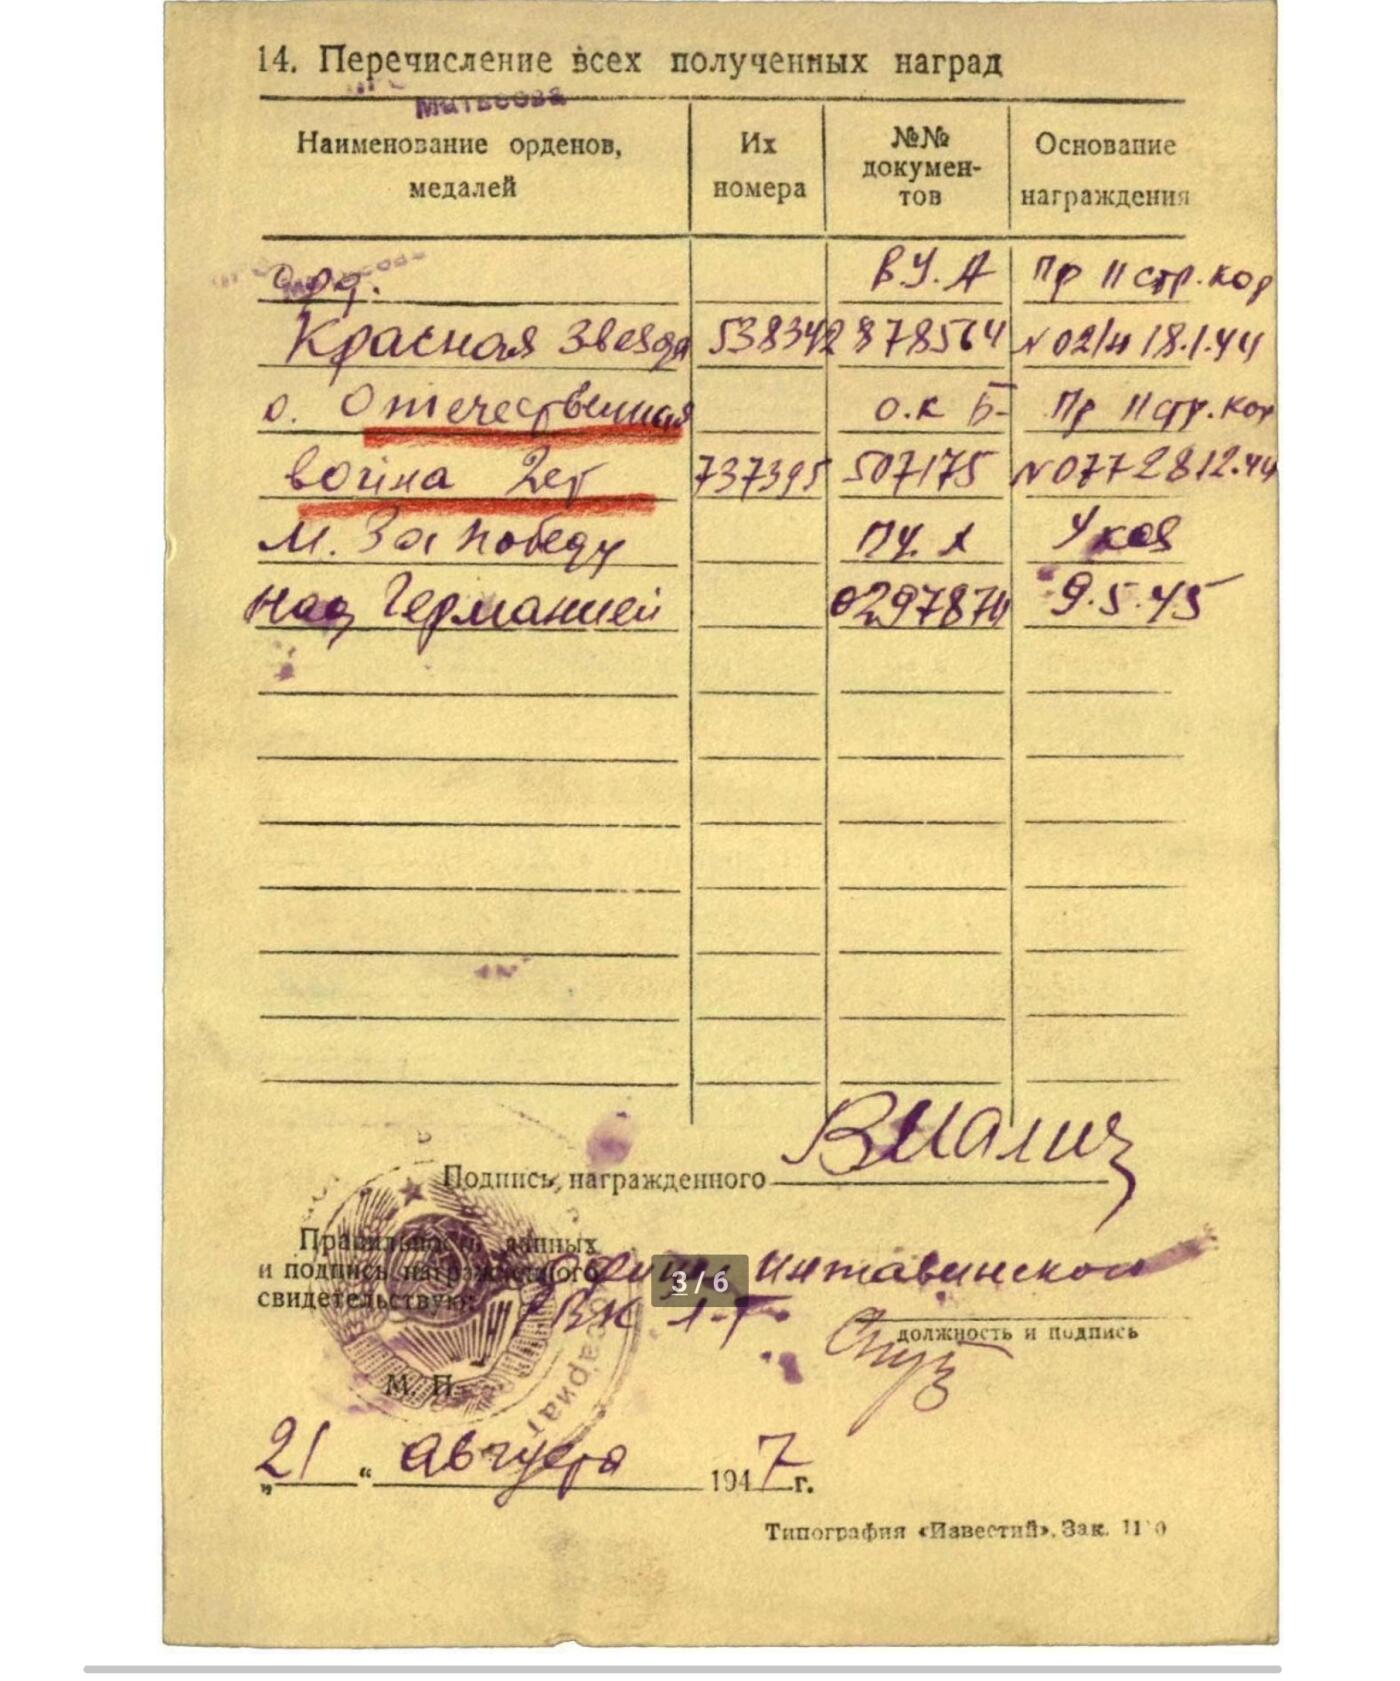 14. Перечисление всех полученных наград
Матвеова
Наименование орденов, медалей
Их номера
№№ документов
Основание награждения
орд. В.У.А Пр II стр. кор
Красная Звезда 538342 878564 N 02/н 18.1.44
о. Отечественная о.к Б- Пр II стр. кор
война 2ст 737395 507175 N 077 28.12.44
М. За победу Указ
над Германией 0297870 9.5.45
Подпись награжденного
Правильность данных
и подпись награжденного
свидетельствую:
РВК
3 / 6
должность и подпись
М. П.
„21“ августа 1947 г.
Типография «Известий». Зак.